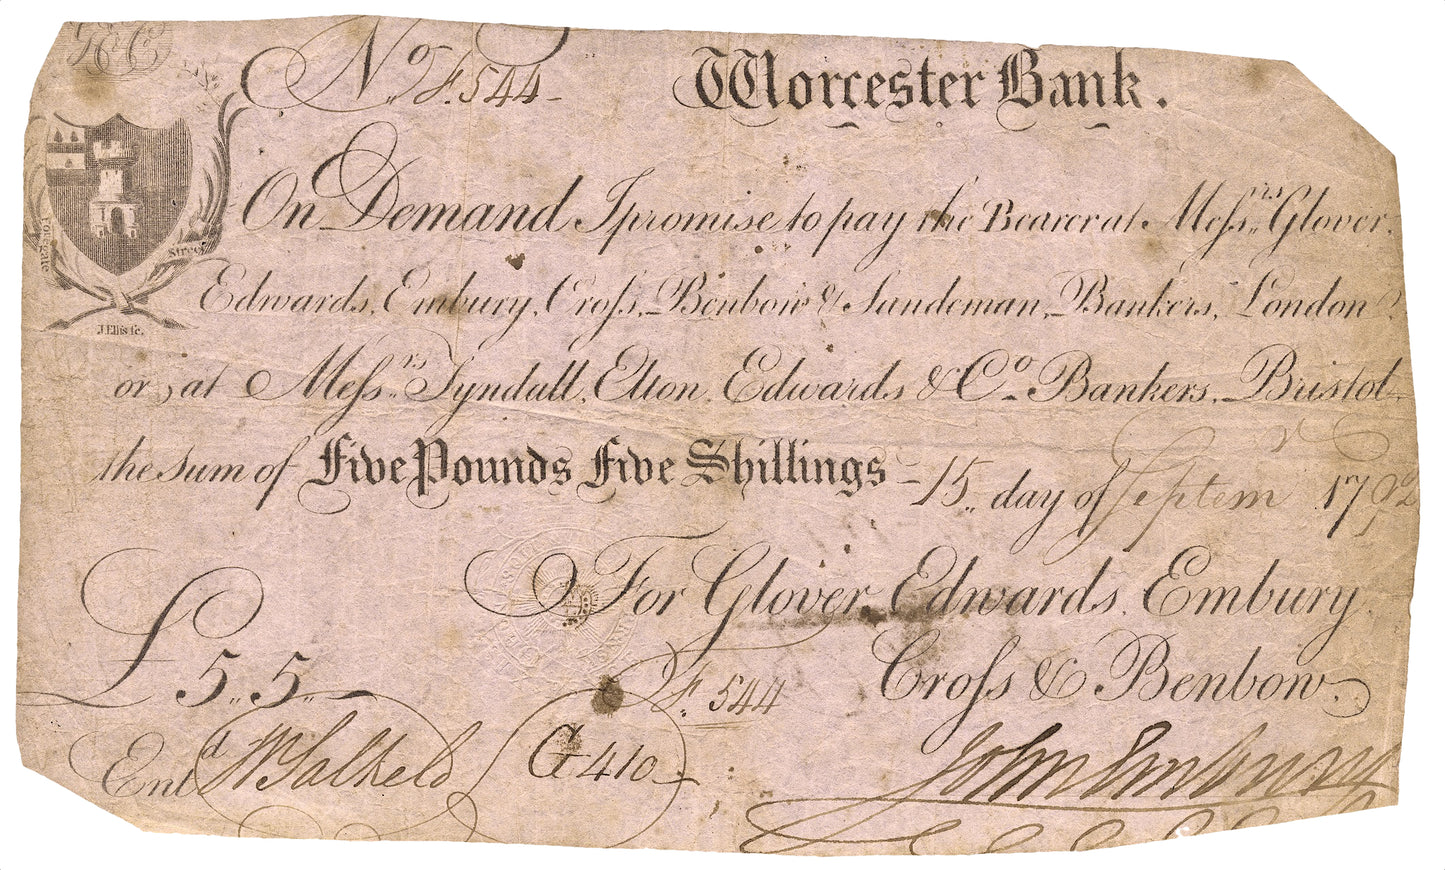 GEC
No. F.544-
Worcester Bank.
On Demand I promise to pay the Bearer at Meſsrs. Glover,
Foregate Street
Edwards, Embury, Croſs, Benbow & Sandeman, Bankers, London,
J. Ellis sc.
or, at Meſsrs. Tyndall, Elton, Edwards & Co. Bankers, Bristol,
the sum of Five Pounds Five Shillings - 15.. day of Septemr 1792
For Glover, Edwards, Embury,
£5..5..
F. 544
Croſs & Benbow.
Entd W Salkeld
G 410
John Embury